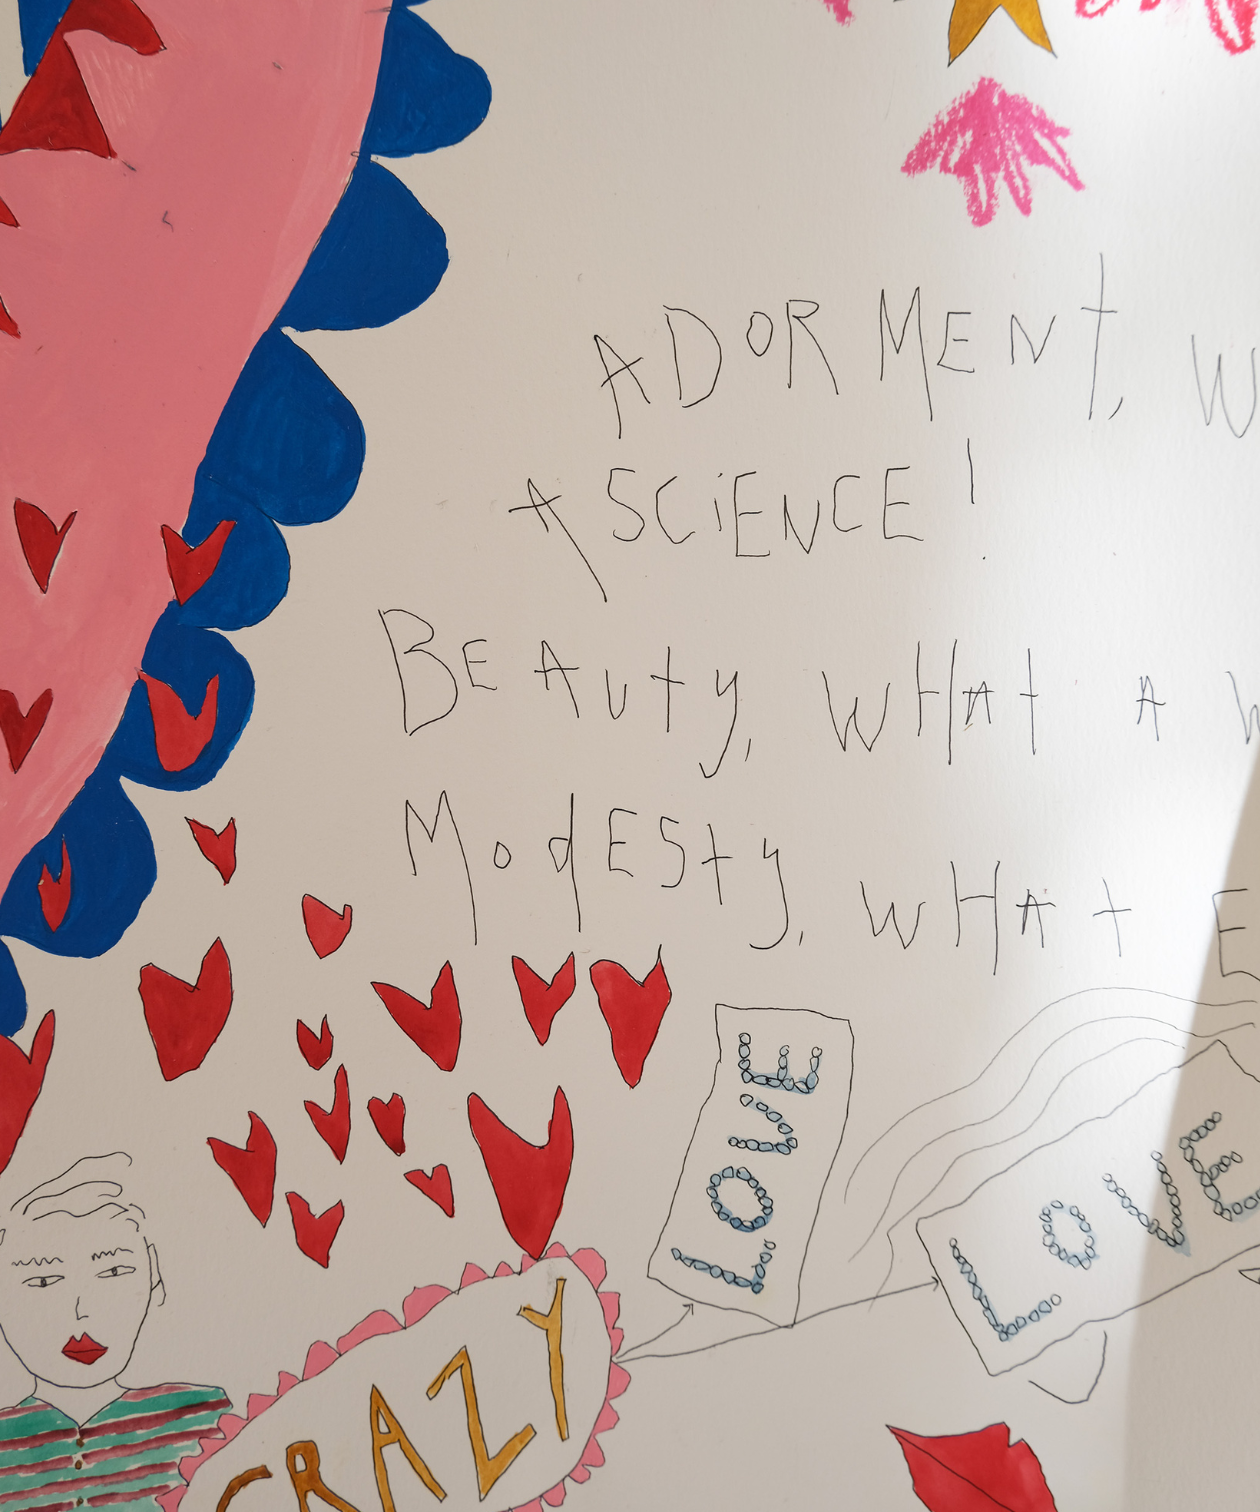 ADORMENT, W
A SCiENCE!
BEAuty, WHAt A W
ModESty, WHAt E
LOVE
LOVE
CRAZY